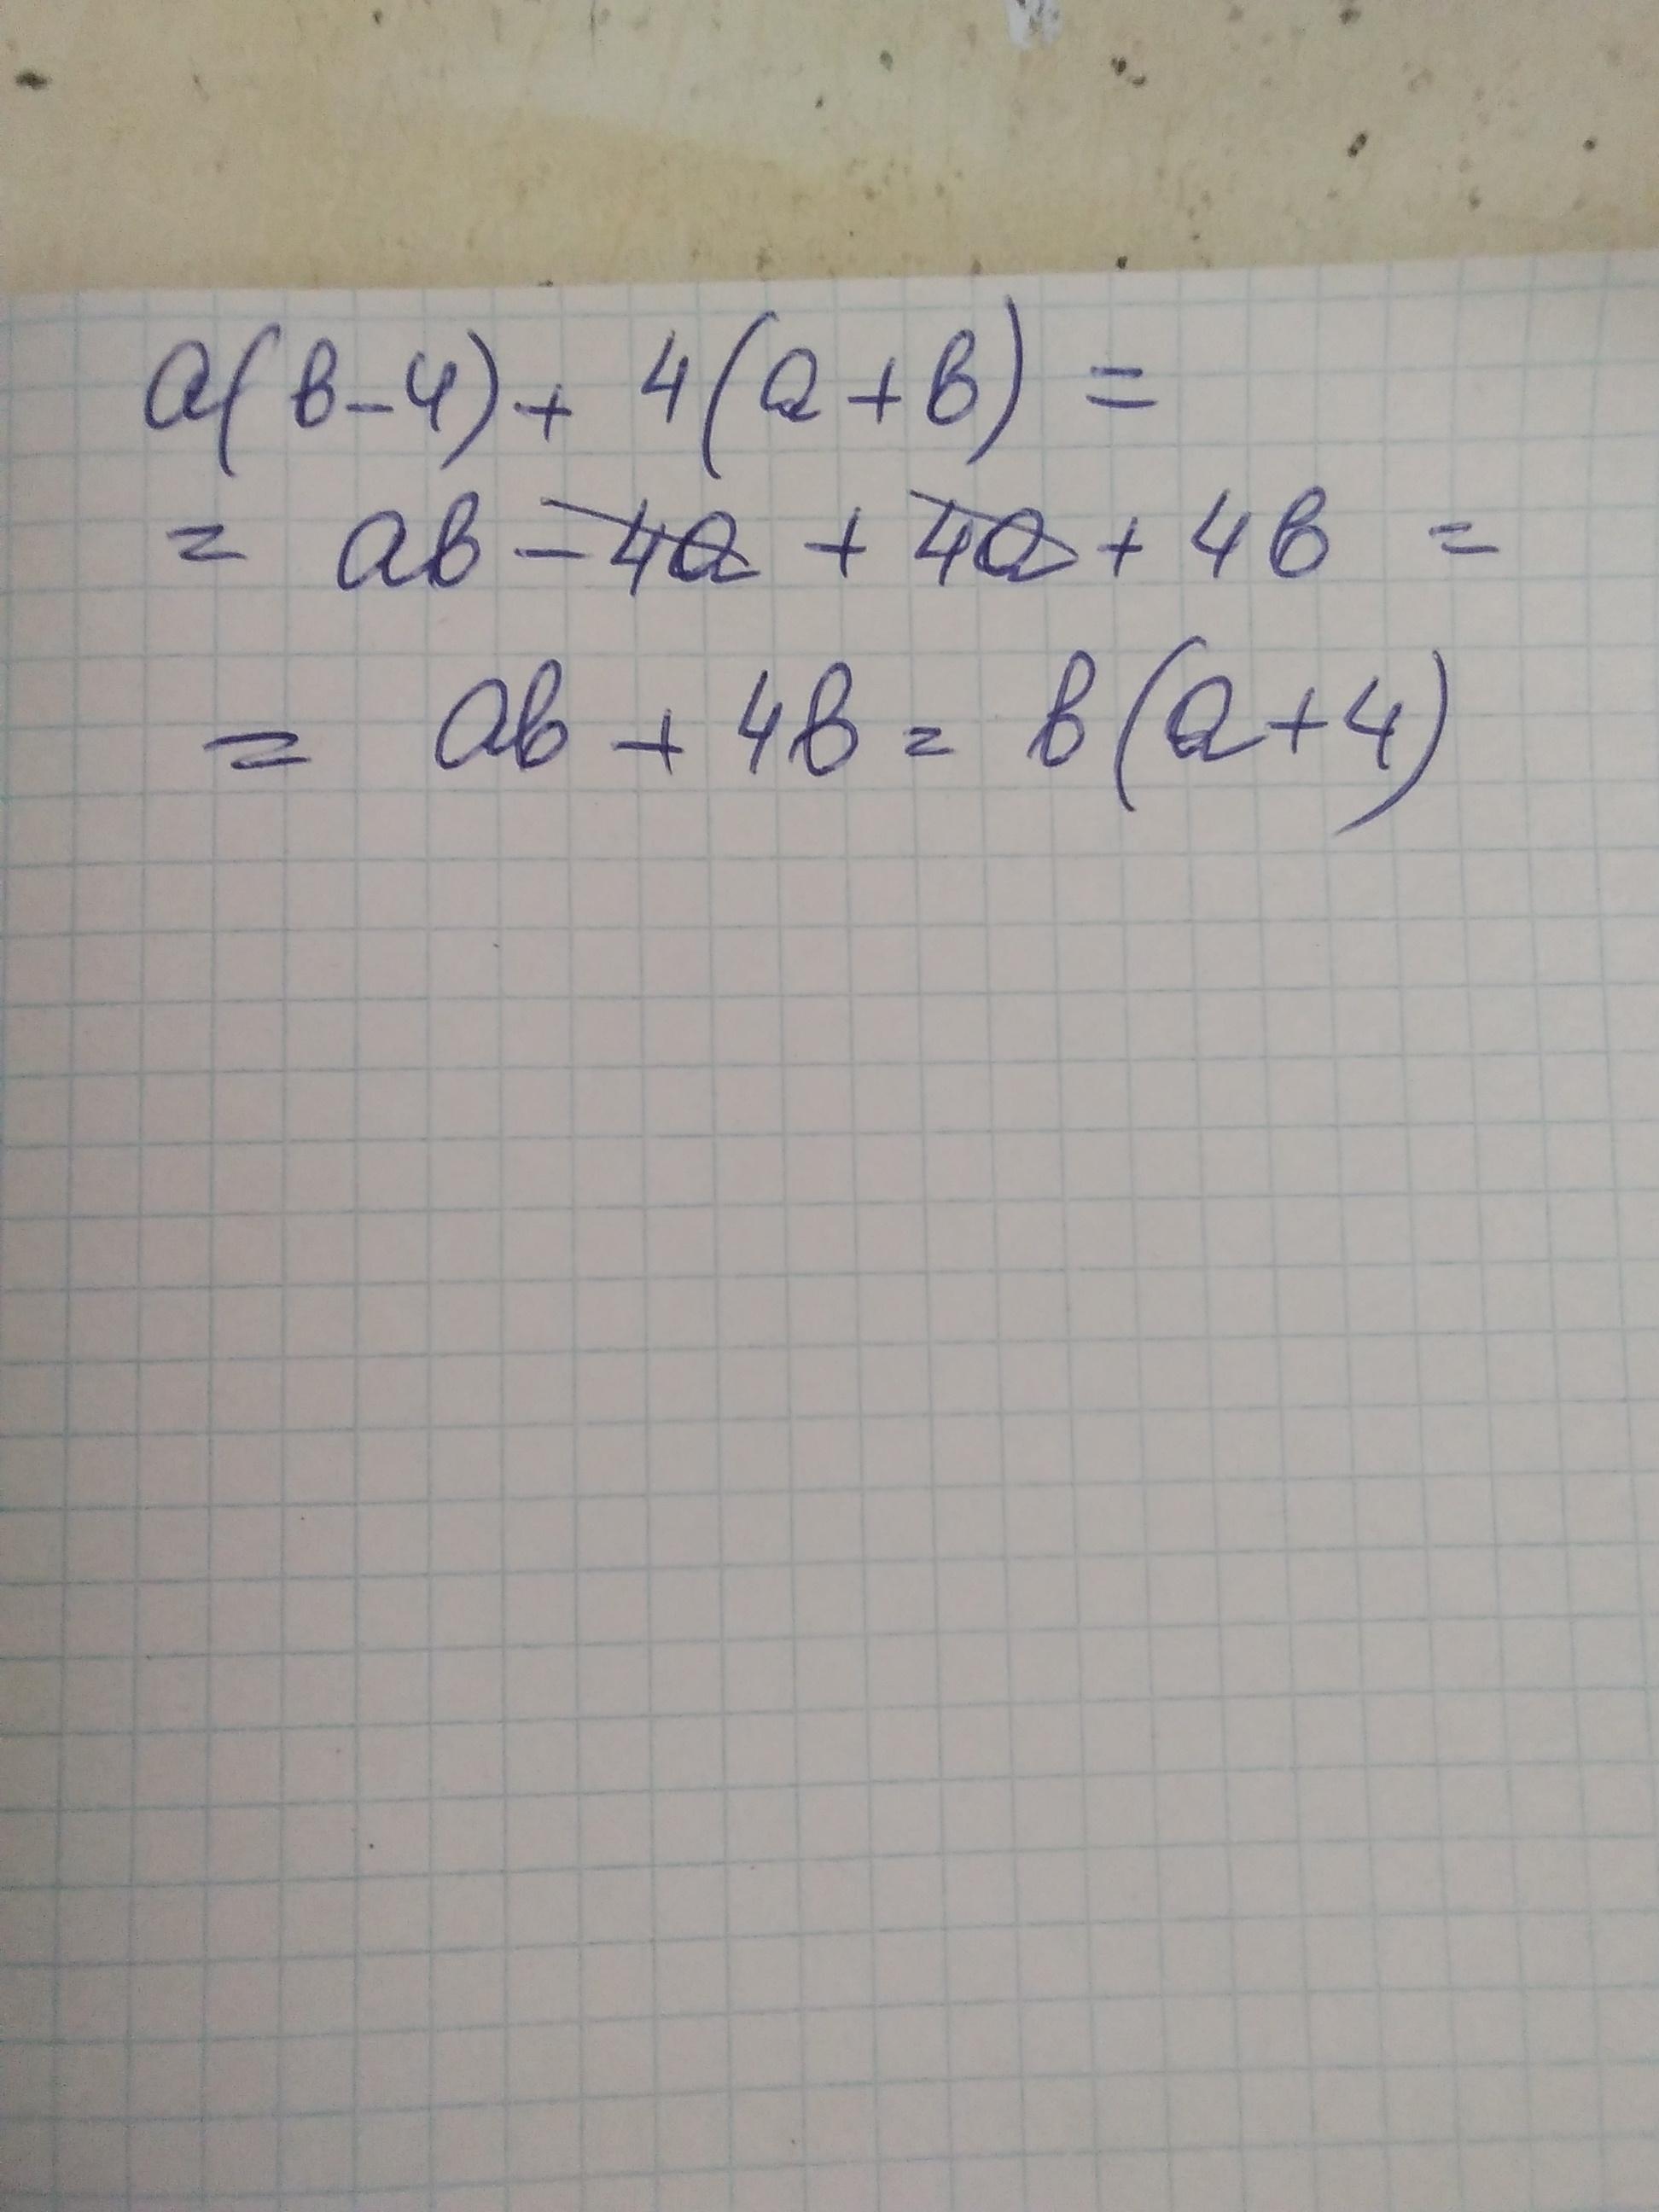 a(b-4)+ 4(a+b) =
= ab - 4a + 4a + 4b =
= ab + 4b = b(a+4)